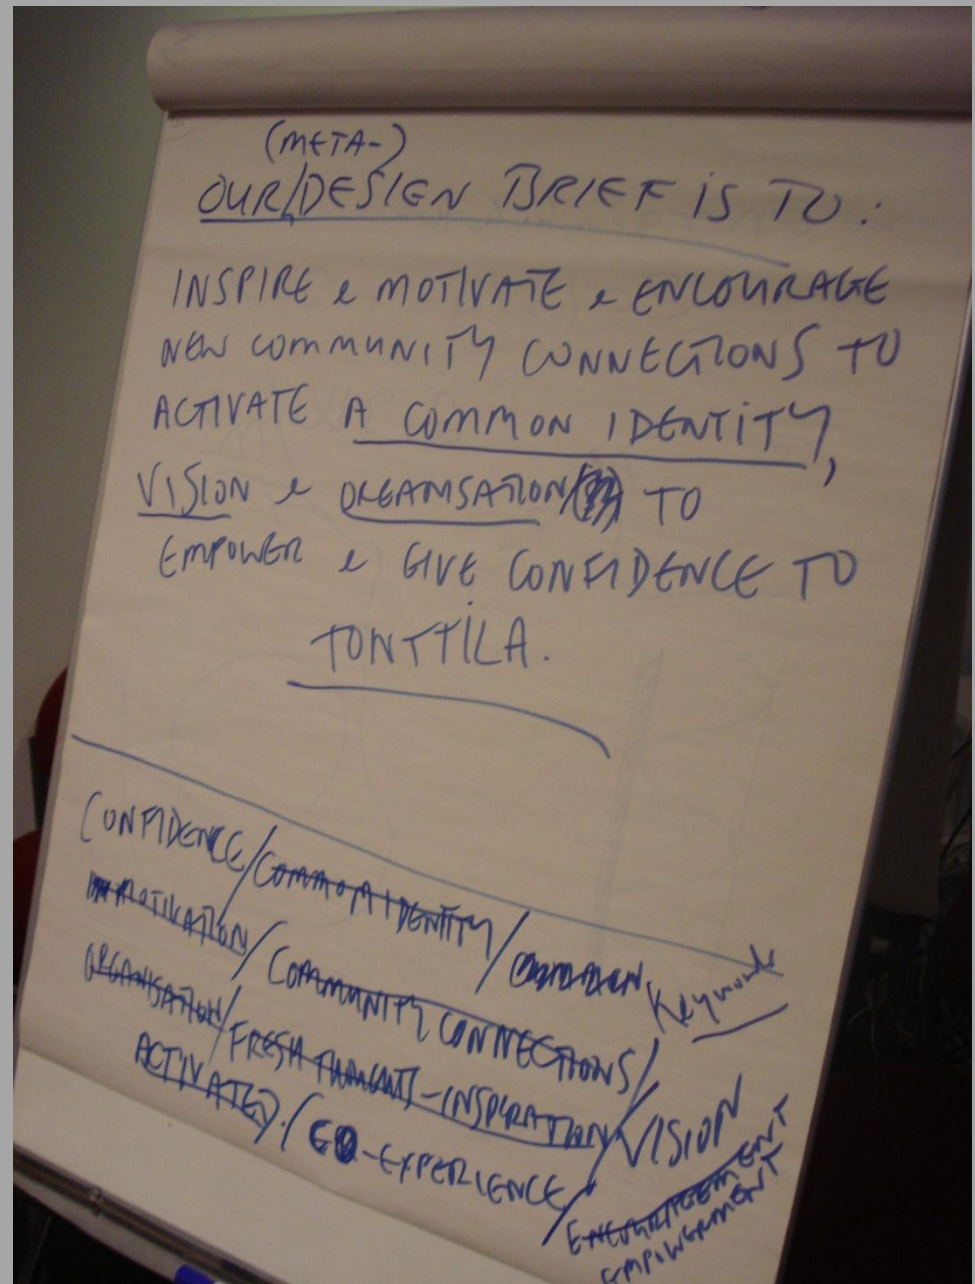 (META-)
OUR/DESIGN BRIEF IS TO:
INSPIRE & MOTIVATE & ENCOURAGE
NEW COMMUNITY CONNECTIONS TO
ACTIVATE A COMMON IDENTITY,
VISION & ORGANISATION TO
EMPOWER & GIVE CONFIDENCE TO
TONTTILA.
Keywords
CONFIDENCE/COMMON IDENTITY/
MOTIVATION/COMMUNITY CONNECTIONS/
ORGANISATION/FRESH -INSPIRATION/VISION
ACTIVATE/CO-EXPERIENCE/
ENCOURAGEMENT
EMPOWERMENT